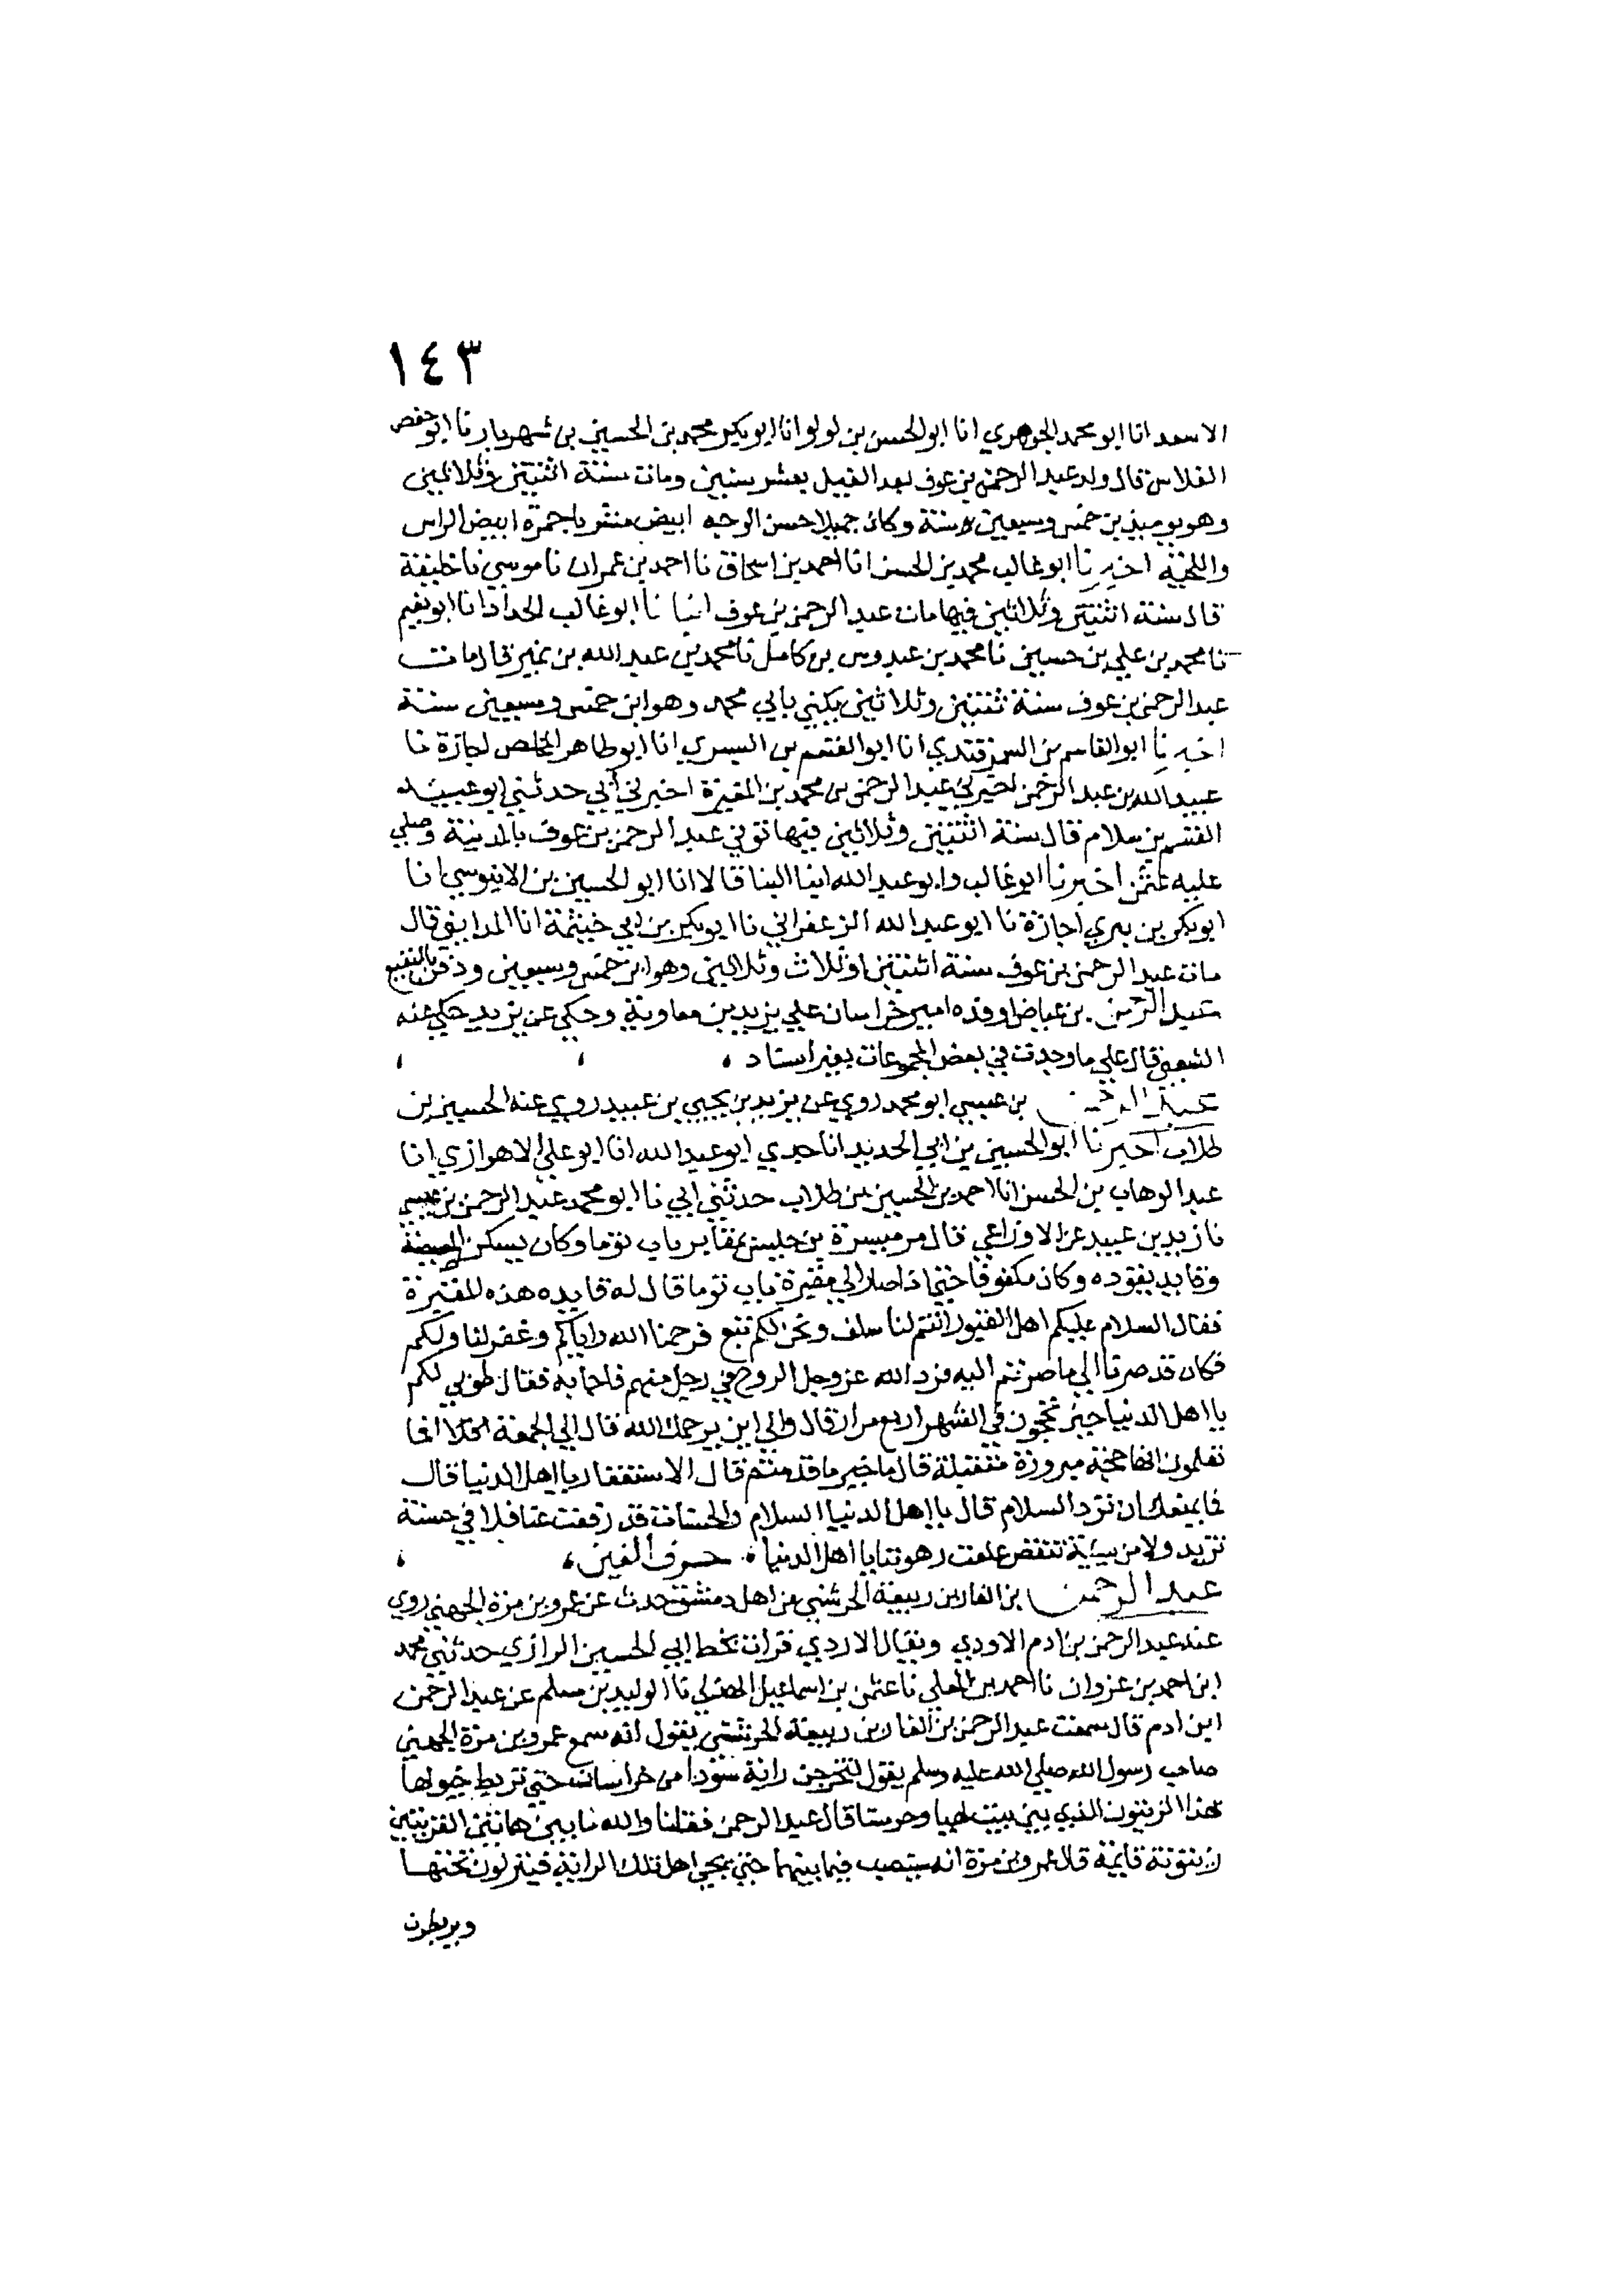 ١٤٣
الاسعد انا ابو محمد الجوهري انا ابو الحسن بن لولو انا ابو بكر محمد بن الحسين بن شهريار نا ابو حفص
الفلاس قال ولد عبد الرحمن بن عوف بعد الفيل بعشر سنين ومات سنة اثنتين وثلاثين
وهو يوميذ بن خمس وسبعين سنة وكان جميلا حسن الوجه ابيض مشربا حمرة ابيض الراس
واللحية اخبرنا ابو غالب محمد بن الحسن انا احمد بن اسحاق نا احمد بن عمران نا موسي نا خليفة
قال سنة اثنتين وثلاثين فيها مات عبد الرحمن بن عوف انبا نا ابو غالب الحداد انا ابو نعيم
نا محمد بن علي بن حسين نا محمد بن عبدوس بن كامل نا محمد بن عبد الله بن نمير قال مات
عبد الرحمن بن عوف سنة ثنتين وثلاثين يكني بابي محمد وهو ابن خمس وسبعين سنة
اخبرنا ابو القاسم بن السمرقندي انا ابو القسم بن البسري انا ابو طاهر المخلص اجازة نا
عبيد الله بن عبد الرحمن اخبرني عبد الرحمن بن محمد بن المغيرة اخبرني ابي حدثني ابو عبيد
القسم بن سلام قال سنة اثنتين وثلاثين فيها توفي عبد الرحمن بن عوف بالمدينة وصلي
عليه عثمن اخبرنا ابو غالب وابو عبد الله ابنا البنا قالا انا ابو الحسين بن الابنوسي انا
ابو بكر بن بيري اجازة نا ابو عبد الله الزعفراني نا ابو بكر بن ابي خيثمة انا المدايني قال
مات عبد الرحمن بن عوف سنة اثنتين او ثلاث وثلاثين وهو ابن خمس وسبعين ودفن بالبقيع
عبد الرحمن بن عياض اوفده امير خراسان علي يزيد بن معاوية وحكي عن يزيد حكي عنه
الشعبي قال علي ما وجدت في بعض المجموعات بغير اسناد
عبد الرحمن بن عيسي ابو محمد روي عن يزيد بن يحيي بن عبيد روي عنه الحسين بن
طلاب اخبرنا ابو الحسين بن ابي الحديد انا جدي ابو عبد الله انا ابو علي الاهوازي انا
عبد الوهاب بن الحسن انا احمد بن الحسين بن طلاب حدثني ابي نا ابو محمد عبد الرحمن بن عيسي
نا زيد بن عبيد عن الاوزاعي قال مر ميسرة بن حلبس بمقابر باب توما وكان يسكن
وقايد يقوده وكان مكفوفا حتي اذا صار الي مقبرة باب توما قال له قايده هذه المقبرة
فقال السلام عليكم اهل القبور انتم لنا سلف ونحن لكم تبع فرحمنا الله واياكم وغفر لنا ولكم
فكان قد صرنا الي ما صرتم اليه فرد الله عز وجل الروح في رجل منهم فاجابه فقال طوبي لكم
يا اهل الدنيا حين تحجون في الشهر اربع مرار قال والي اين يرحمك الله قال الي الجمعة افلا
تعلمون انها حجة مبرورة متقبلة قال ما خير ما قدمتم قال الاستغفار يا اهل الدنيا قال
فما يمنعك ان ترد السلام قال يا اهل الدنيا السلام والحسنات قد رفعت عنا فلا في حسنة
نزيد ولا من سيية تنقص غلقت رهوننا يا اهل الدنيا حرف الغين
عبد الرحمن بن الغاز بن ربيعة الجرشي من اهل دمشق حدث عن عمرو بن مرة الجهني روي
عنه عبد الرحمن بن ادم الاودي ويقال الازدي قرات بخط ابي الحسين الرازي حدثني محمد
ابن احمد بن غزوان نا احمد بن المعلي نا عثمن بن اسماعيل الهذلي نا الوليد بن مسلم عن عبد الرحمن
ابن ادم قال سمعت عبد الرحمن بن الغاز بن ربيعة الجرشي يقول انه سمع عمرو بن مرة الجهني
صاحب رسول الله صلي الله عليه وسلم يقول لتخرجن راية سودا من خراسان حتي تربط خيولها
بهذا الزيتون الذي بين بيت لهيا وحرستا قال عبد الرحمن فقلنا والله ما بين هاتين القريتين
زيتونة قايمة قال عمرو بن مرة انه سينصب فيما بينهما حتي يجي اهل تلك الراية فينزلون تحتها
ويربطون